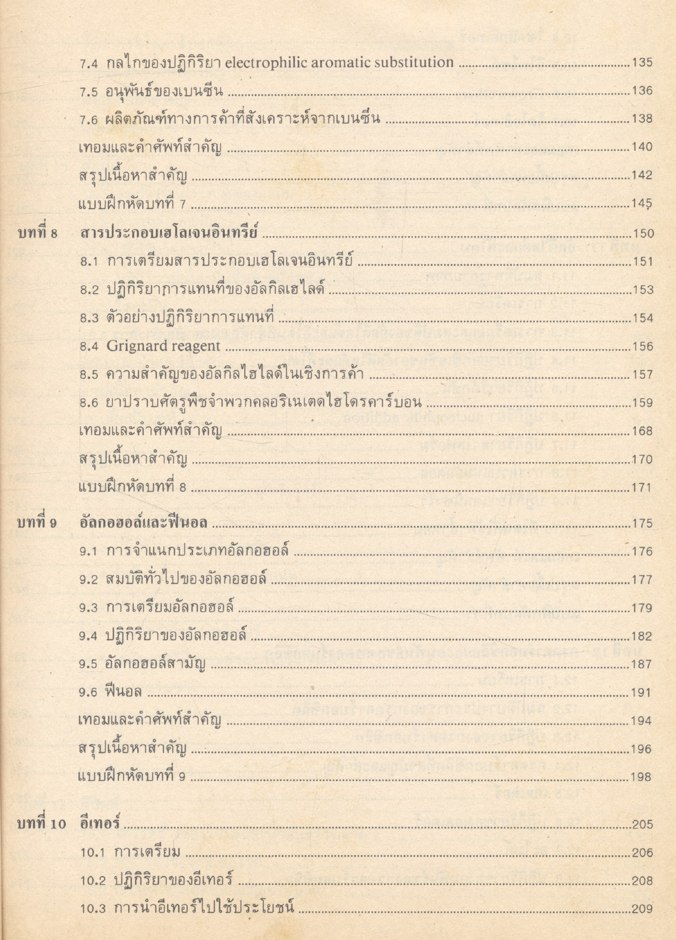 7.4 กลไกของปฏิกิริยา electrophilic aromatic substitution 135
7.5 อนุพันธ์ของเบนซีน 136
7.6 ผลิตภัณฑ์ทางการค้าที่สังเคราะห์จากเบนซีน 138
เทอมและคำศัพท์สำคัญ 140
สรุปเนื้อหาสำคัญ 142
แบบฝึกหัดบทที่ 7 145
บทที่ 8 สารประกอบเฮโลเจนอินทรีย์ 150
8.1 การเตรียมสารประกอบเฮโลเจนอินทรีย์ 151
8.2 ปฏิกิริยาการแทนที่ของอัลกิลเฮไลด์ 153
8.3 ตัวอย่างปฏิกิริยาการแทนที่ 154
8.4 Grignard reagent 156
8.5 ความสำคัญของอัลกิลไฮไลด์ในเชิงการค้า 157
8.6 ยาปราบศัตรูพืชจำพวกคลอริเนเตดไฮโดรคาร์บอน 159
เทอมและคำศัพท์สำคัญ 168
สรุปเนื้อหาสำคัญ 170
แบบฝึกหัดบทที่ 8 171
บทที่ 9 อัลกอฮอล์และฟีนอล 175
9.1 การจำแนกประเภทอัลกอฮอล์ 176
9.2 สมบัติทั่วไปของอัลกอฮอล์ 177
9.3 การเตรียมอัลกอฮอล์ 179
9.4 ปฏิกิริยาของอัลกอฮอล์ 182
9.5 อัลกอฮอล์สามัญ 187
9.6 ฟีนอล 191
เทอมและคำศัพท์สำคัญ 194
สรุปเนื้อหาสำคัญ 196
แบบฝึกหัดบทที่ 9 198
บทที่ 10 อีเทอร์ 205
10.1 การเตรียม 206
10.2 ปฏิกิริยาของอีเทอร์ 208
10.3 การนำอีเทอร์ไปใช้ประโยชน์ 209